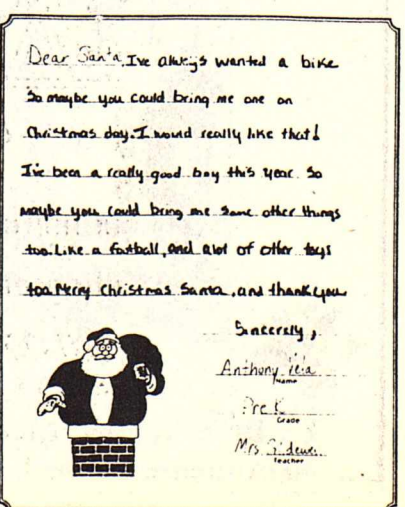 Dear Santa, I've always wanted a bike
So maybe you could bring me one on
Christmas day. I would really like that!
I've been a really good boy this year. So
maybe you could bring me some other things
too. Like a football, and alot of other toys
too. Merry Christmas Santa, and thank you.
Sincerely,
Anthony
Name
Pre K
Grade
Mrs.
Teacher